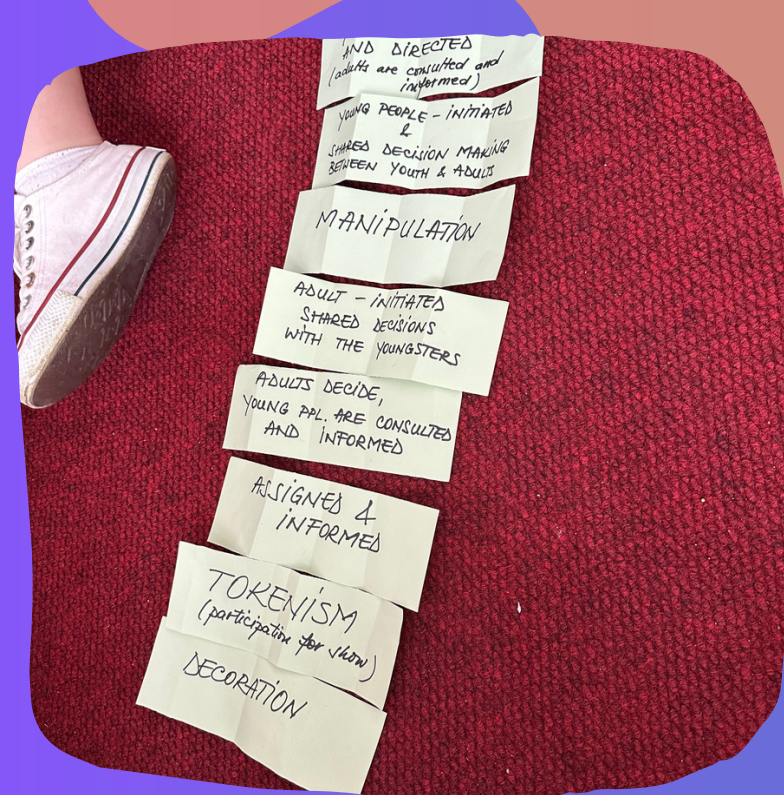 AND DIRECTED
(adults are consulted and
informed)
YOUNG PEOPLE - INITIATED
&
SHARED DECISION MAKING
BETWEEN YOUTH & ADULTS
MANIPULATION
ADULT - INITIATED
SHARED DECISIONS
WITH THE YOUNGSTERS
ADULTS DECIDE,
YOUNG PPL. ARE CONSULTED
AND INFORMED
ASSIGNED &
INFORMED
TOKENISM
(participation for show)
DECORATION